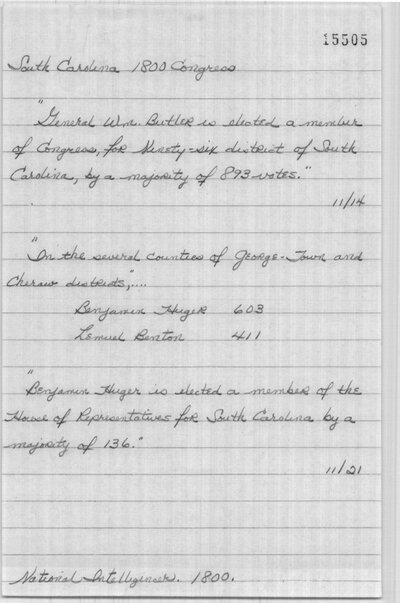 15505
South Carolina 1800 Congress
"General Wm. Butler is elected a member
of Congress, for Ninety-six district of South
Carolina, by a majority of 893 votes."
11/14
"In the several counties of George-Town and
Cheraw districts,"....
Benjamin Huger 603
Lemuel Benton 411
"Benjamin Huger is elected a member of the
House of Representatives for South Carolina by a
majority of 136."
11/21
National Intelligencer. 1800.